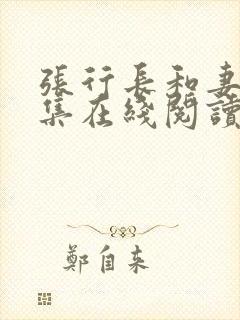 張行長和妻
集在綫閱讀
鄭自来